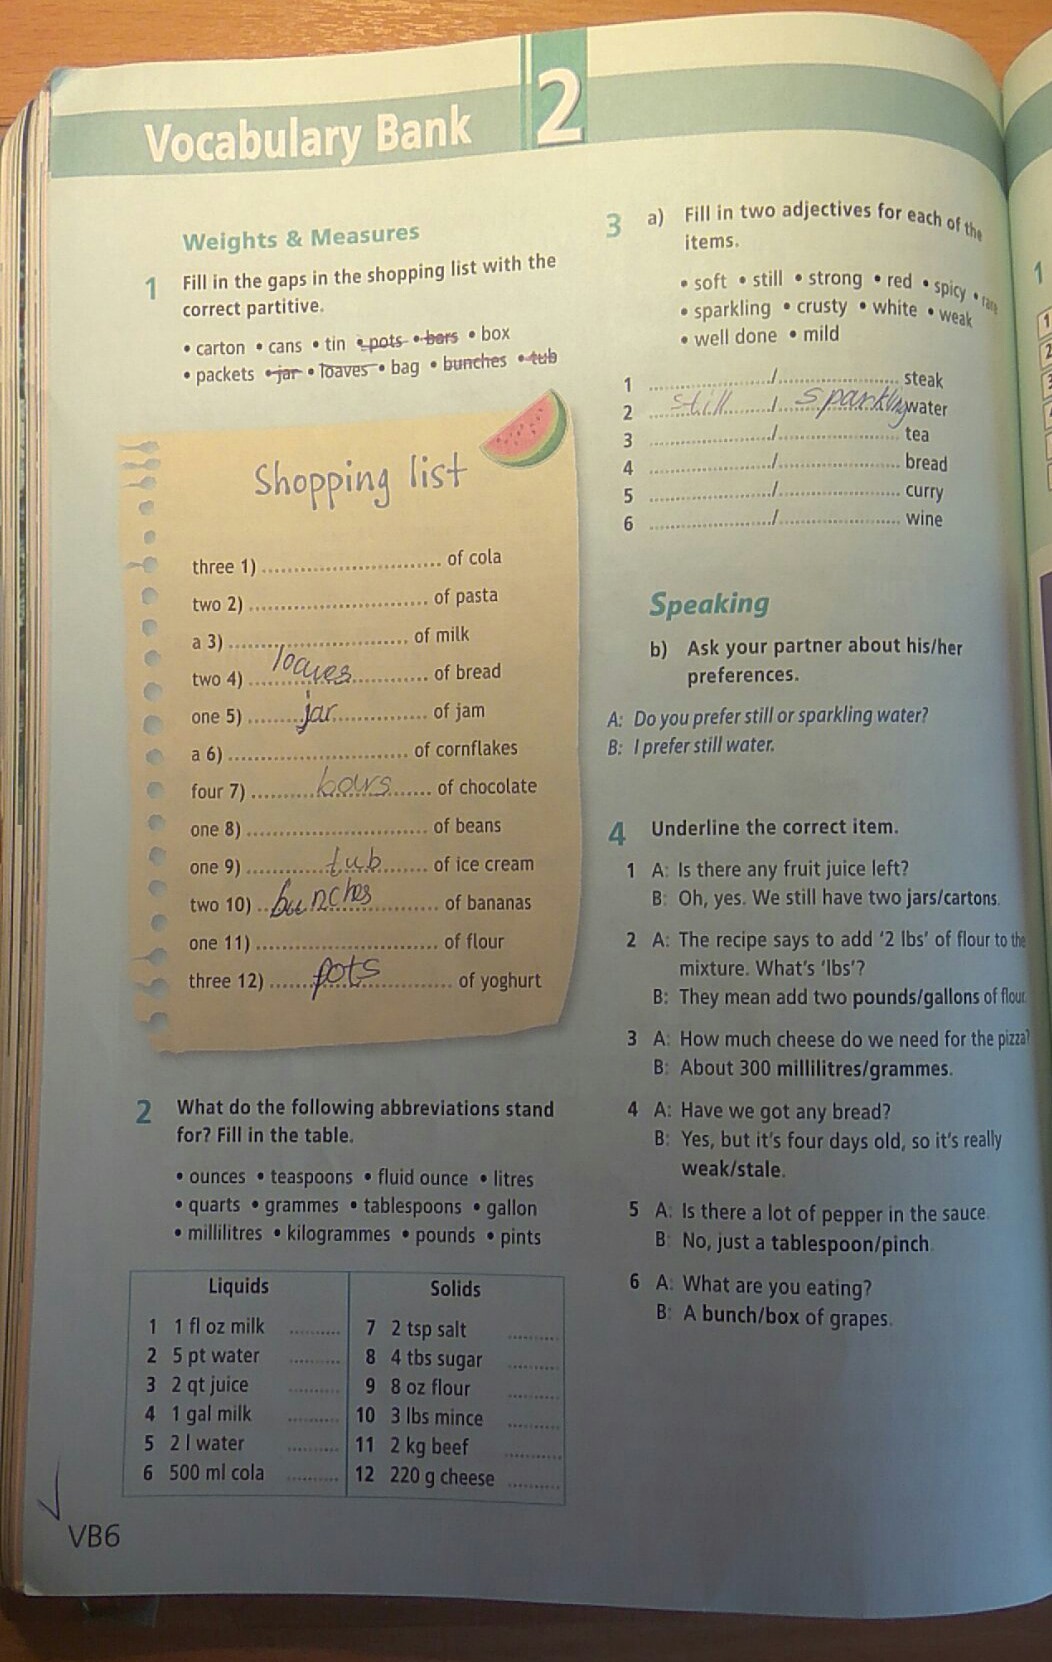 Vocabulary Bank 2
Weights & Measures
1 Fill in the gaps in the shopping list with the
correct partitive.
• carton • cans • tin • pots • bars • box
• packets • jar • loaves • bag • bunches • tub
Shopping list
three 1) .............................. of cola
two 2) .............................. of pasta
a 3) .............................. of milk
two 4) loaves of bread
one 5) jar of jam
a 6) .............................. of cornflakes
four 7) bars of chocolate
one 8) .............................. of beans
one 9) tub of ice cream
two 10) bunches of bananas
one 11) .............................. of flour
three 12) pots of yoghurt
2 What do the following abbreviations stand
for? Fill in the table.
• ounces • teaspoons • fluid ounce • litres
• quarts • grammes • tablespoons • gallon
• millilitres • kilogrammes • pounds • pints
Liquids
1 1 fl oz milk ..........
2 5 pt water ..........
3 2 qt juice ..........
4 1 gal milk ..........
5 2 l water ..........
6 500 ml cola ..........
Solids
7 2 tsp salt ..........
8 4 tbs sugar ..........
9 8 oz flour ..........
10 3 lbs mince ..........
11 2 kg beef ..........
12 220 g cheese ..........
VB6
3 a) Fill in two adjectives for each of the
items.
• soft • still • strong • red • spicy • rare
• sparkling • crusty • white • weak
• well done • mild
1 ..................../.................... steak
2 still / sparkling water
3 ..................../.................... tea
4 ..................../.................... bread
5 ..................../.................... curry
6 ..................../.................... wine
Speaking
b) Ask your partner about his/her
preferences.
A: Do you prefer still or sparkling water?
B: I prefer still water.
4 Underline the correct item.
1 A: Is there any fruit juice left?
B: Oh, yes. We still have two jars/cartons.
2 A: The recipe says to add '2 lbs' of flour to the
mixture. What's 'lbs'?
B: They mean add two pounds/gallons of flour.
3 A: How much cheese do we need for the pizza?
B: About 300 millilitres/grammes.
4 A: Have we got any bread?
B: Yes, but it's four days old, so it's really
weak/stale.
5 A: Is there a lot of pepper in the sauce.
B: No, just a tablespoon/pinch.
6 A: What are you eating?
B: A bunch/box of grapes.